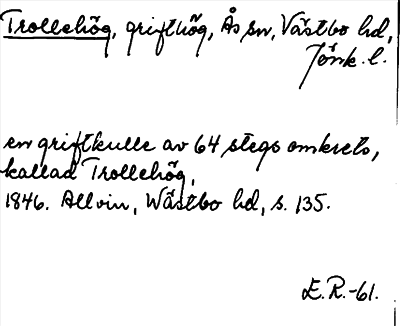 Trollehög, grifthög, Ås sn, Västbo hd,
Jönk. l.
en griftkulle av 64 stegs omkrets,
kallad Trollehög,
1846. Allvin, Wästbo hd, s. 135.
E.R.-61.